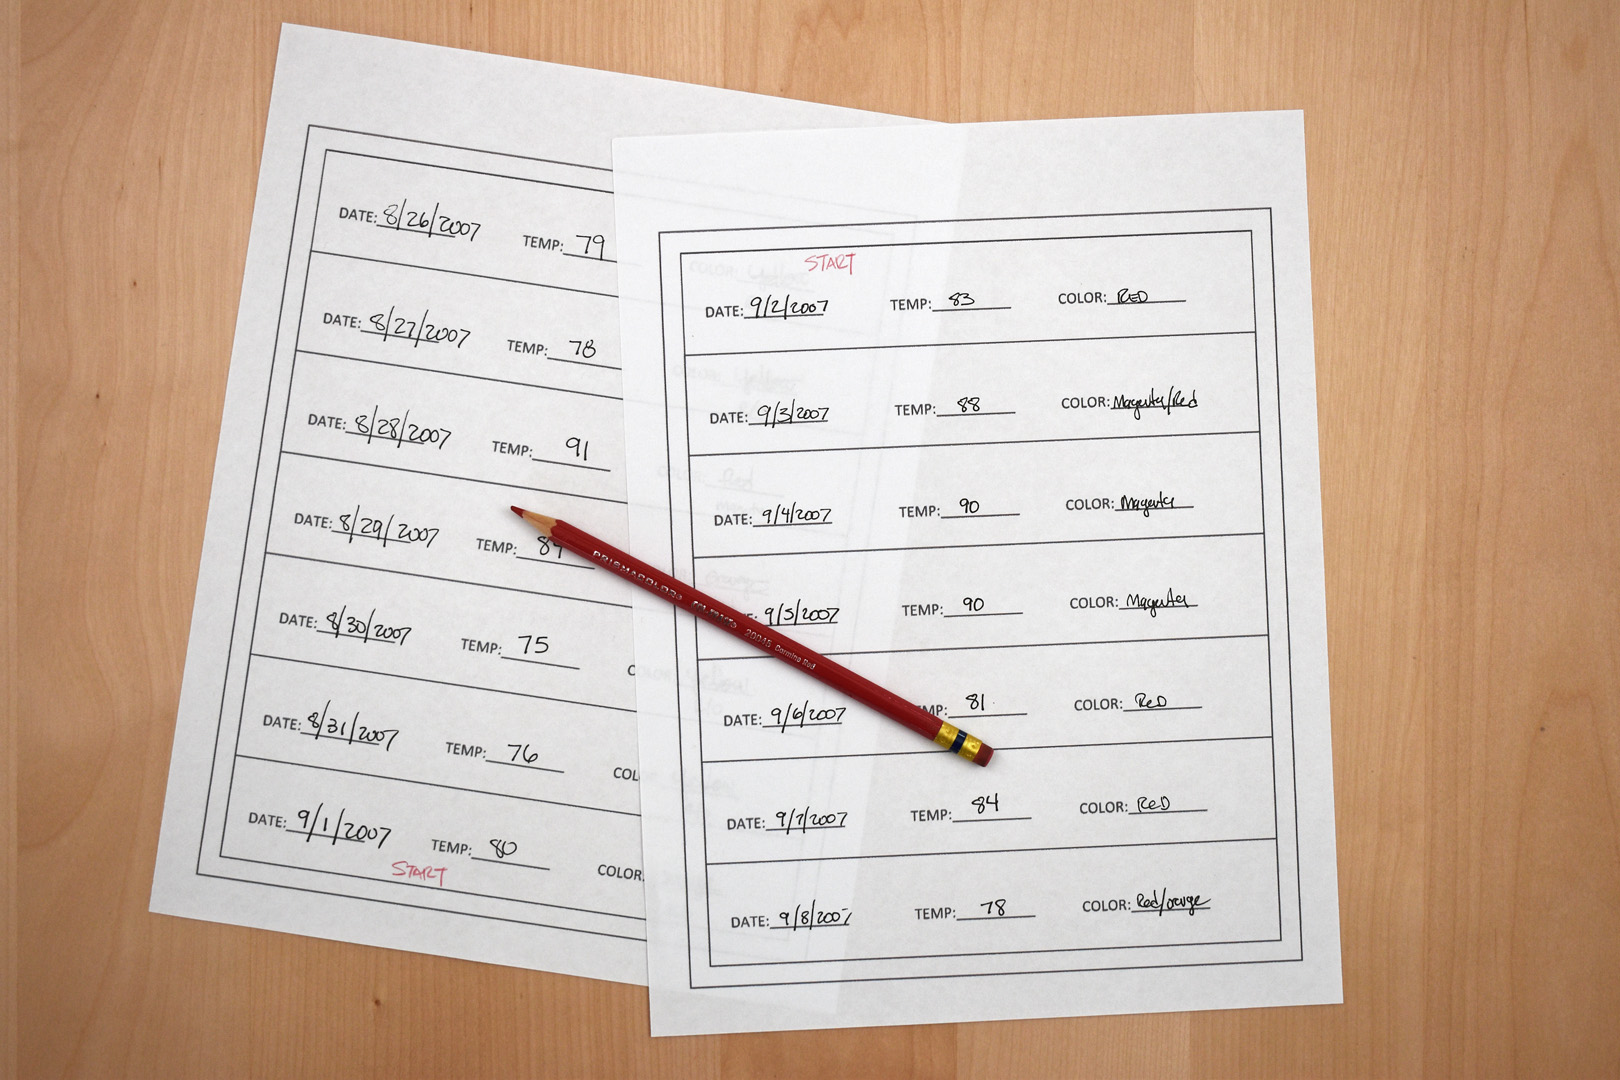 DATE: 8/26/2007 TEMP: 79
DATE: 8/27/2007 TEMP: 78
DATE: 8/28/2007 TEMP: 91
DATE: 8/29/2007 TEMP:
DATE: 8/30/2007 TEMP: 75
DATE: 8/31/2007 TEMP: 76 COL
DATE: 9/1/2007 TEMP: 80 COLOR
START
START
DATE: 9/2/2007 TEMP: 83 COLOR: RED
DATE: 9/3/2007 TEMP: 88 COLOR: Magenta/Red
DATE: 9/4/2007 TEMP: 90 COLOR: Magenta
9/5/2007 TEMP: 90 COLOR: Magenta
DATE: 9/6/2007 MP: 81 COLOR: ReD
DATE: 9/7/2007 TEMP: 84 COLOR: ReD
DATE: 9/8/2007 TEMP: 78 COLOR: Red/orange
PRISMACOLOR 20045 Carmine Red